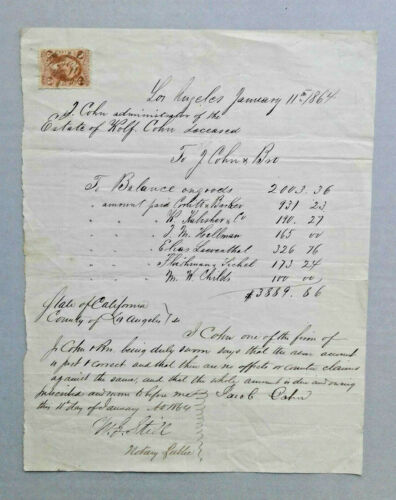 Los Angeles January 11th 1864
J Cohn administrator of the
Estate of Wolf Cohn deceased
To J Cohn & Bro
To Balance on goods 2003.36
" amount paid & Barker 931 23
" " K. Kalisher & Co 190.27
" " I. M. Hellman 165 00
" " Elias Laventhal 326 76
" " Fleishman & Sichel 173 24
" " M. W. Childs 100 00
$3889.86
State of California
County of Los Angeles } ss
J Cohn one of the firm of
J. Cohn & Bro. being duly sworn says that the above account
is just & correct and that there are no offsets or counter claims
against the same, and that the whole amount is due and owing
subscribed and sworn to before me Jacob Cohn
this 11th day of January AD 1864
W. G. Still
Notary Public